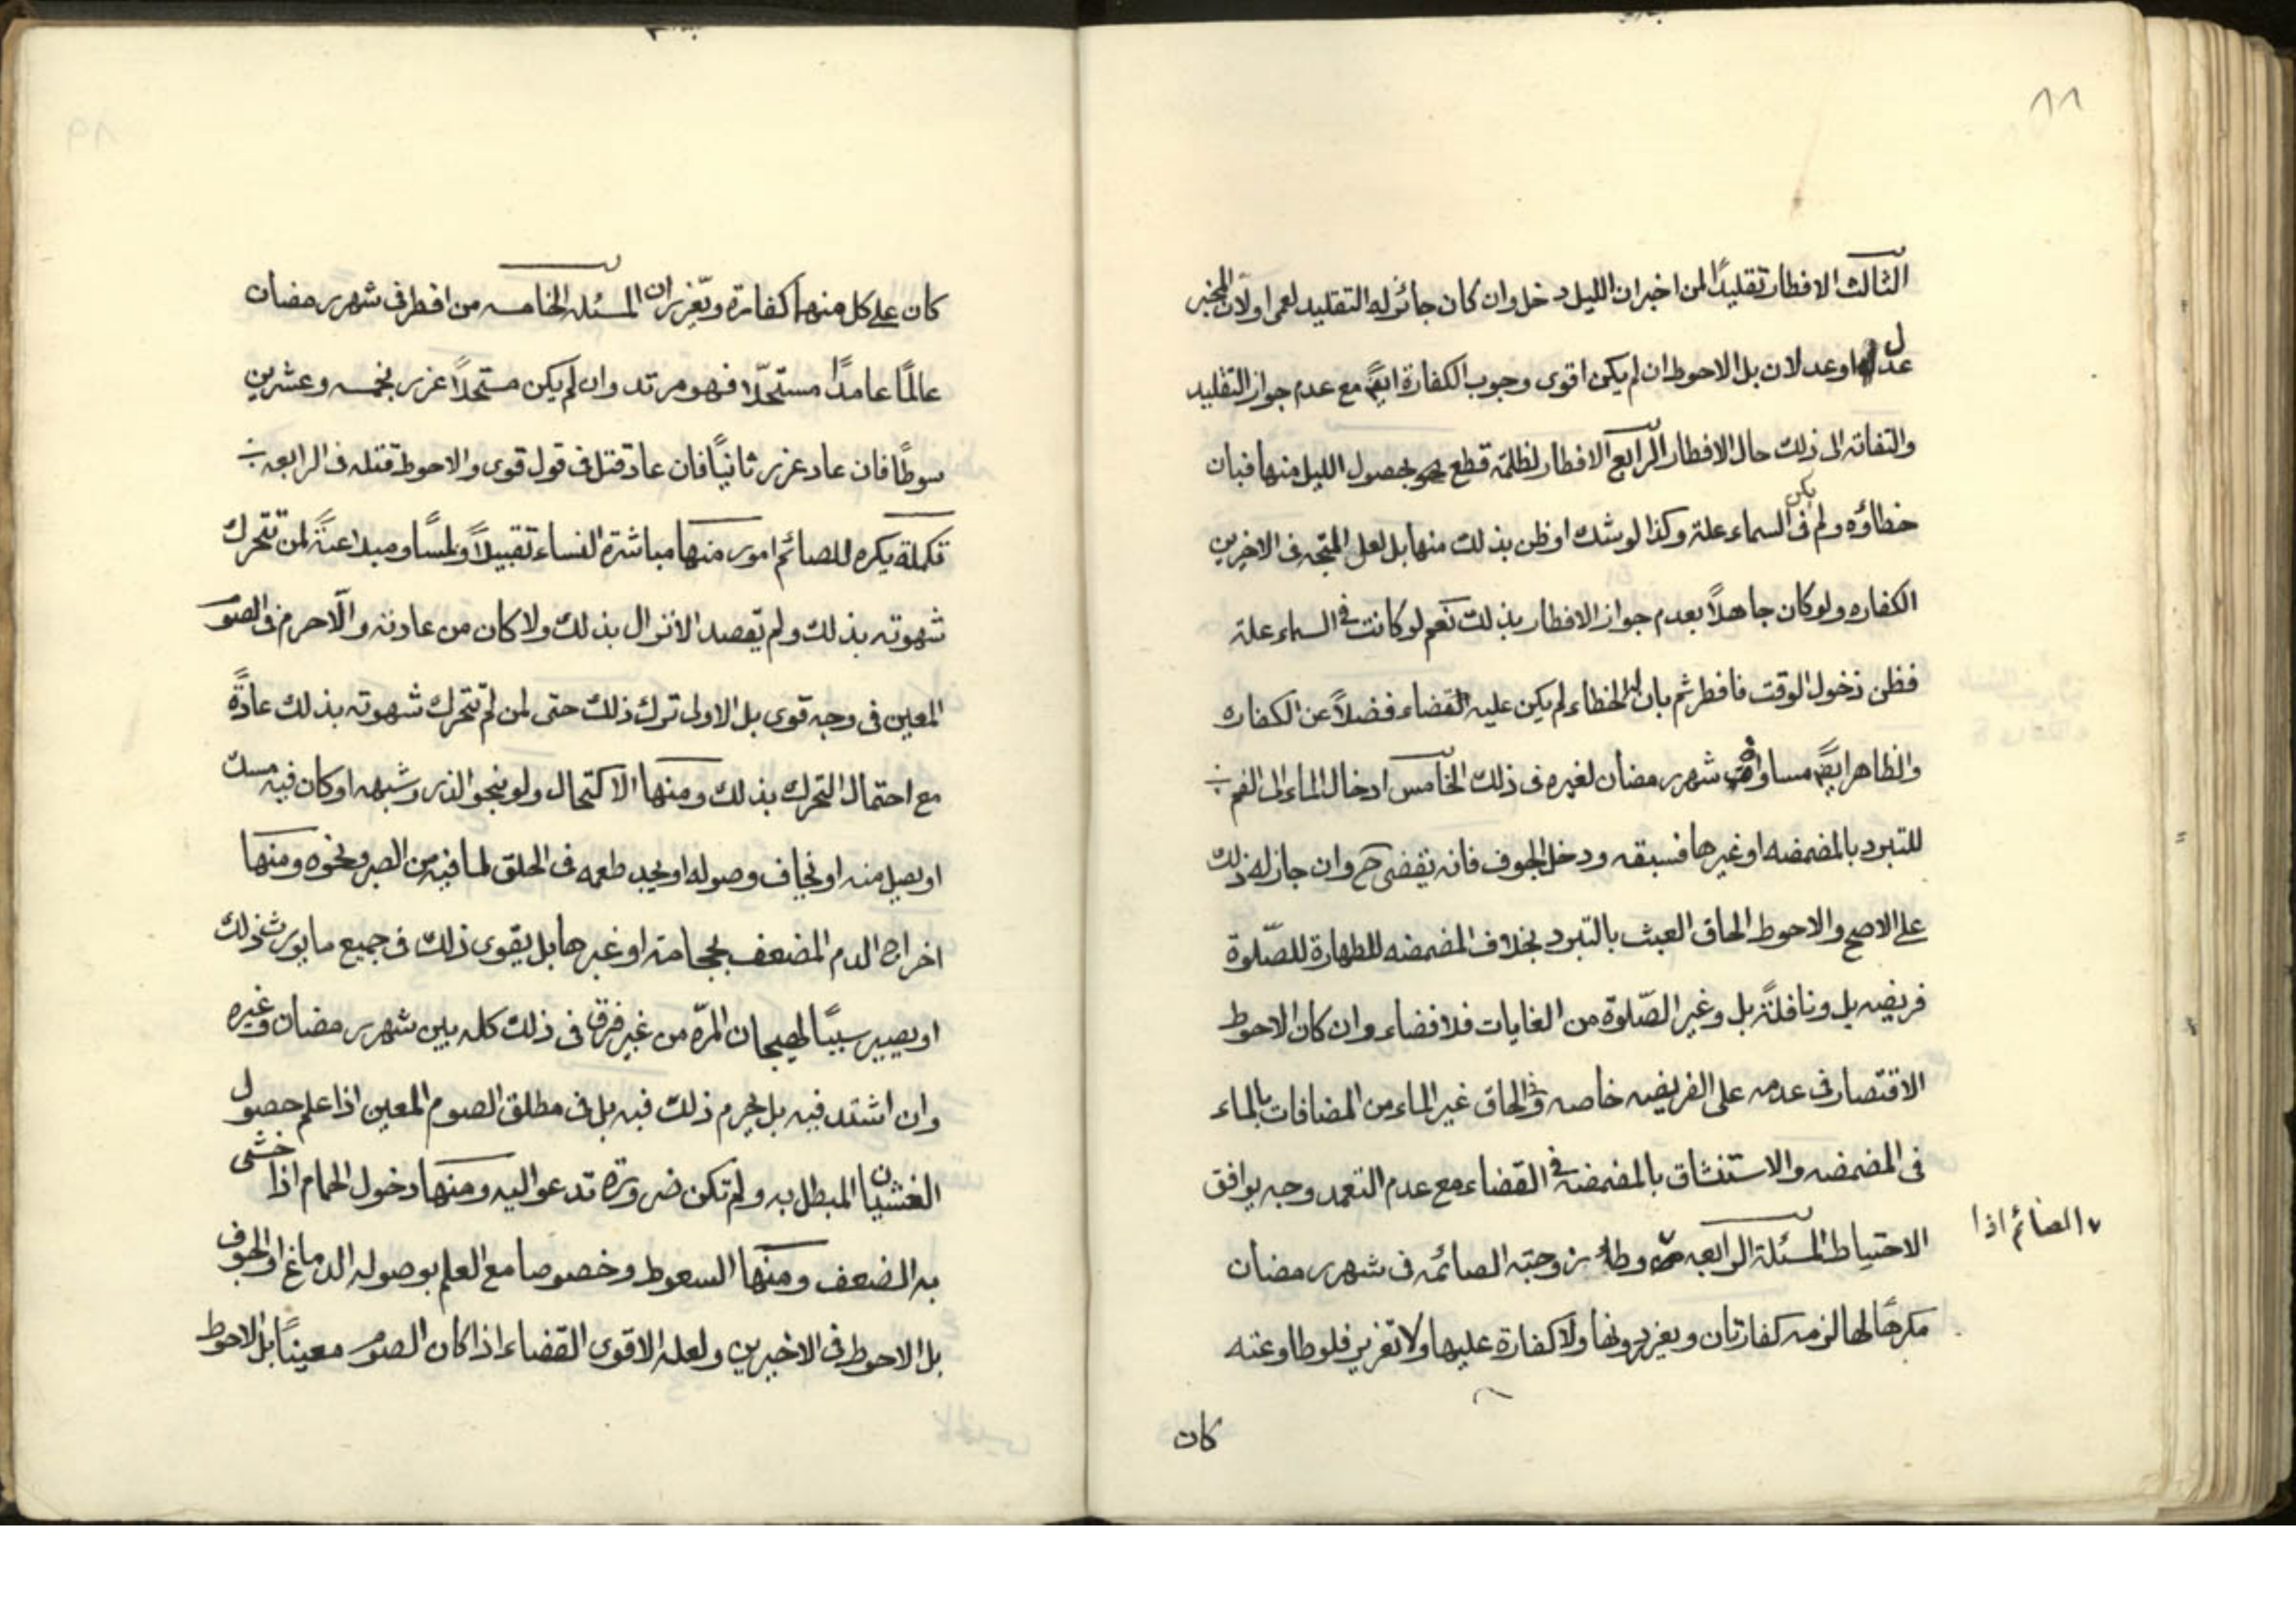 ٨٨
الثالث الافطار تقليدًا لمن اخبر ان الليل دخل وان كان جائز له التقليد لعمى او لان المخبر
عدل او عدلان بل الاحوط ان لم يكن اقوى وجوب الكفارة ايضً مع عدم جواز التقليد
والتفاته الى ذلك حال الافطار الرابع الافطار لظلمة قطع بحصول الليل منها فبان
خطاؤه ولم يكن فى السماء علة وكذا لو شك او ظن بذلك منها بل لعل المتجه فى الاخيرين
الكفاره ولو كان جاهلاً بعدم جواز الافطار بذلك نعم لو كانت فى السماء علة
فظن دخول الوقت فافطر ثم بان الخطاء لم يكن عليه القضاء فضلاً عن الكفاره
والظاهر ايضً مساواة شهر رمضان لغيره فى ذلك الخامس ادخال الماء الى الفم
للتبرد بالمضمضه او غيرها فسبقه ودخل الجوف فانه يقضى ح وان جاز له ذلك
على الاصح والاحوط الحاق العبث بالتبرد بخلاف المضمضه للطهارة للصّلوة
فريضه بل ونافلةً بل وغير الصّلوة من الغايات فلا قضاء وان كان الاحوط
الاقتصار فى عدمه على الفريضه خاصه وفى الحاق غير الماء من المضافات بالماء
فى المضمضه والاستنشاق بالمضمضة فى القضاء مع عدم التعمد وجه يوافق
الاحتياط المسئلة الرابعه وطأ زوجته الصائمه فى شهر رمضان
الصائم اذا
مكرهًا لها لزمه كفارتان ويعزر دونها ولا كفارة عليها ولا تعزير فلو طاوعته
كان
٨٩
كان على كل منهما كفارة وتعزيران المسئله الخامسه من افطر فى شهر رمضان
عالمًا عامدًا مستحلّا فهو مرتد وان لم يكن مستحلاً عزر بخمسه وعشرين
سوطًا فان عاد عزر ثانيًا فان عاد قتل فى قول قوى والاحوط قتله فى الرابعه
تكملة يكره للصائم امور منها مباشرة النساء تقبيلاً ولمسًا وملاعبةً لمن تتحرك
شهوته بذلك ولم يقصد الانزال بذلك ولا كان من عادته والّا حرم فى الصوم
المعين فى وجه قوى بل الاولى ترك ذلك حتى لمن لم تتحرك شهوته بذلك عادةً
مع احتمال التحرك بذلك ومنها الاكتحال ولو بنحو الذر وشبهه او كان فيه مسك
او يصل منه او يخاف وصوله او يجد طعمه فى الحلق لما فيه من الصبر ونحوه ومنها
اخراج الدم المضعف بحجامة او غيرها بل يقوى ذلك فى جميع ما يورث ذلك
او يصير سببًا لهيجان المرّه من غير فرق فى ذلك كله بين شهر رمضان وغيره
وان اشتد فيه بل يحرم ذلك فيه بل فى مطلق الصوم المعين اذا علم حصول
الغشيان المبطل به ولم تكن ضرورة تدعو اليه ومنها دخول الحمام اذا خشى
به الضعف ومنها السعوط وخصوصا مع العلم بوصوله الدماغ او الجوف
بل الاحوط فى الاخيرين ولعله الاقوى القضاء اذا كان الصوم معينًا بل الاحوط